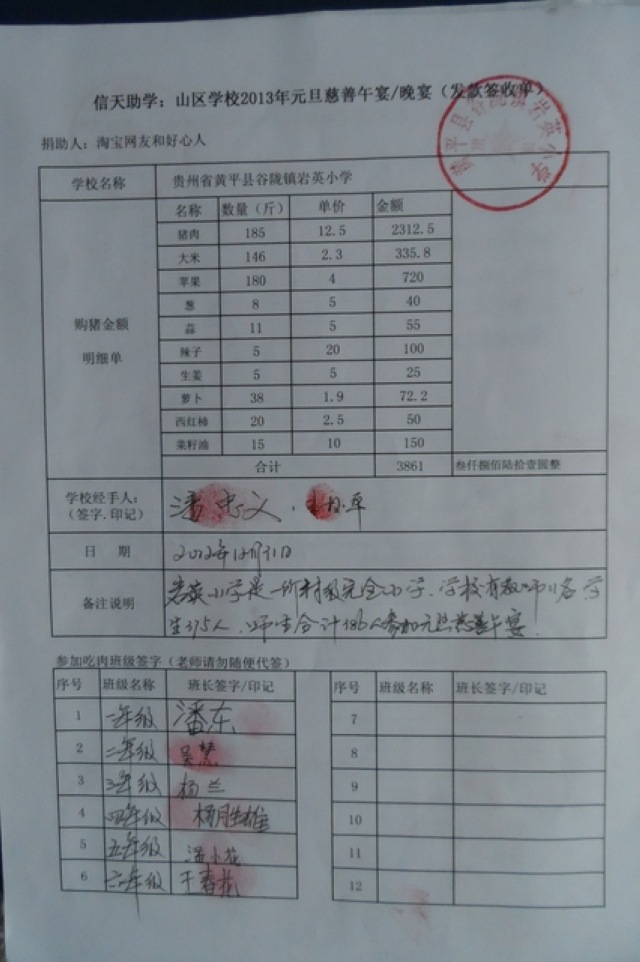 信天助学：山区学校2013年元旦慈善午宴/晚宴（发款签收单）
捐助人：淘宝网友和好心人
学校名称 贵州省黄平县谷陇镇岩英小学
名称 数量（斤） 单价 金额
猪肉 185 12.5 2312.5
大米 146 2.3 335.8
苹果 180 4 720
葱 8 5 40
蒜 11 5 55
购猪金额
明细单
辣子 5 20 100
生姜 5 5 25
萝卜 38 1.9 72.2
西红柿 20 2.5 50
菜籽油 15 10 150
合计 3861 叁仟捌佰陆拾壹圆整
学校经手人：
（签字.印记）
潘忠义
日 期 2012年12月31日
备注说明
岩英小学是一所村级完全小学，学校有教师11名 学
生375人，师生合计386人参加元旦慈善午宴
参加吃肉班级签字（老师请勿随便代签）
序号 班级名称 班长签字/印记 序号 班级名称 班长签字/印记
1 一年级 潘东 7
2 二年级 吴慧 8
3 三年级 杨兰 9
4 四年级 杨胜雄 10
5 五年级 潘小花 11
6 六年级 王春花 12